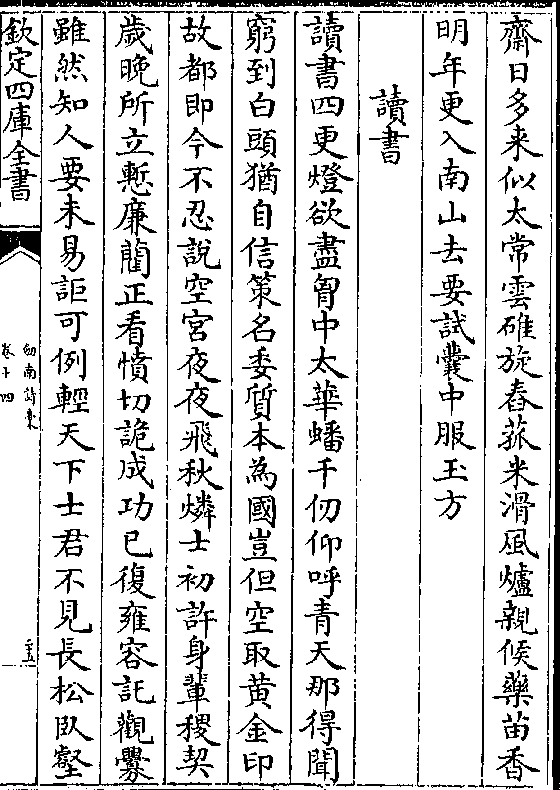 齋日多来似太常雲碓旋舂菰米滑風爐親候藥苗香
明年更入南山去要試囊中服玉方
讀書
讀書四更燈欲盡胷中太華蟠千仞仰呼青天那得聞
窮到白頭猶自信策名委質本為國豈但空取黄金印
故都即今不忍說空宮夜夜飛秋燐士初許身輩稷契
歲晚所立慙廉藺正看憤切詭成功已復雍容託觀釁
雖然知人要未易詎可例輕天下士君不見長松臥壑
欽定四庫全書
劒南詩槀
卷十四